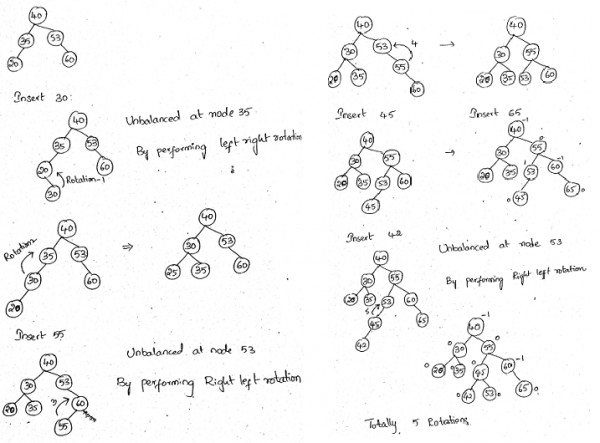 40
35 53
20 60
Insert 30:
40
35 53
20 60
Rotation-1
30
Unbalanced at node 35
By performing left right rotation
Rotation
40
35 53
30 60
20
⇒
40
30 53
25 35 60
Insert 55
40
30 53
20 35 60
3
55
Unbalanced at node 53
By performing Right left rotation
40
30 53
4
20 35 55
60
→
40
30 55
20 35 53 60
Insert 45
40
30 55
20 35 53 60
45
→
Insert 65
40 -1
30 55 0
20 35 53 1 60 -1
0 45 65 0
Insert 42
40
30 55
20 35 53 60
5 45 65
42
Unbalanced at node 53
By performing Right left rotation
40 -1
0 30 55 0
0 20 35 0 45 60 -1
0 42 53 0 65 0
Totally 5 Rotations